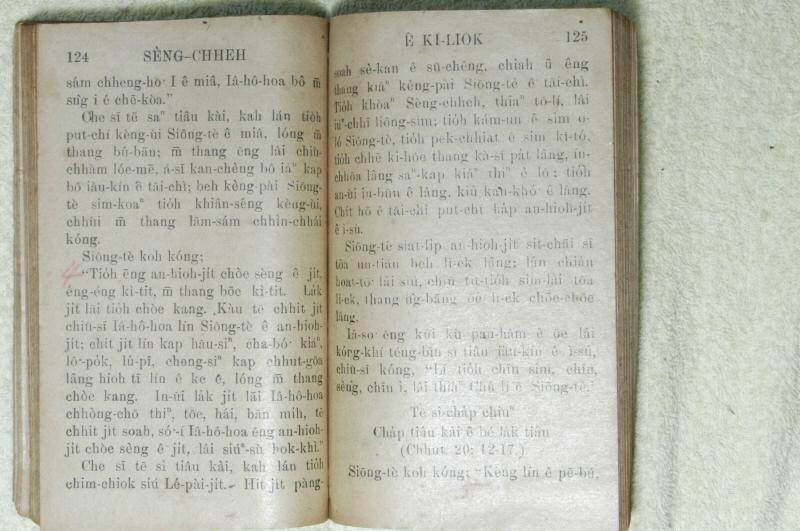 124 SÈNG-CHHEH
sám chheng-ho͘ I ê miâ, Iâ-hô-hoa bô m̄
sǹg i ê chē-kòa."
Che sī tē saⁿ tiâu kài, kah lán tio̍h
put-chí kèng-ùi Siōng-tè ê miâ, lóng m̄
thang bú-bān; m̄ thang ēng lâi chiù-
chhàm lóe-mē, á-sī kan-chèng bô iáⁿ kap
bô iàu-kín ê tāi-chì; beh kèng-pài Siōng-
tè sim-koaⁿ tio̍h khiân-sêng kèng-ùi,
chhùi m̄ thang lām-sám chhìn-chhái
kóng.
Siōng-tè koh kóng;
"Tio̍h ēng an-hioh-ji̍t chòe sèng ê ji̍t,
éng-éng kì-tit, m̄ thang bōe kì-tit. La̍k
ji̍t lâi tio̍h chòe kang. Kàu tē chhit ji̍t
chiū-sī Iâ-hô-hoa lín Siōng-tè ê an-hioh-
ji̍t; chit ji̍t lín kap hāu-siⁿ, cha-bó͘ kiáⁿ,
lô͘-po̍k, lú-pī, cheng-siⁿ kap chhut-gōa
lâng hioh tī lín ê ke ê, lóng m̄ thang
chòe kang. In-ūi la̍k ji̍t lāi Iâ-hô-hoa
chhòng-chō thiⁿ, tōe, hái, bān mih, tē
chhit ji̍t soah, só͘-í Iâ-hô-hoa ēng an-hioh-
ji̍t chòe sèng ê ji̍t, lâi siúⁿ-sù hok-khì."
Che sī tē sì tiâu kài, kah lán tio̍h
chim-chiok siú Lé-pài-ji̍t. Hit ji̍t pàng-
Ê KI-LIOK 125
soah sè-kan ê sū-chêng, chiah ū êng
thang kiâⁿ kèng-pài Siōng-tè ê tāi-chì.
Tio̍h khòaⁿ Sèng-chheh, thiaⁿ tō-lí, lâi
iúⁿ-chhī liông-sim; tio̍h kám-un ê sim o-
ló Siōng-tè, tio̍h pek-chhiat ê sim kî-tó,
tio̍h chhē ki-hōe thang kà-sī pa̍t lâng, ín-
chhōa lâng saⁿ-kap kiâⁿ thiⁿ ê lō͘; tio̍h
an-ùi iu-būn ê lâng, kiù kan-khó͘ ê lâng.
Chit hō ê tāi-chì put-chí ha̍p an-hioh-ji̍t
ê ì-sù.
Siōng-tè siat-li̍p an-hioh-ji̍t si̍t-chāi sī
tōa un-tián beh lī-ek lâng; lán chiàu
hoat-tō͘ lâi siú, chiū tù-tio̍h sim-lāi tōa
lī-ek, thang ǹg-bāng ōe lī-ek chōe-chōe
lâng.
Iâ-so͘ ēng kúi kù pau-hâm ê ōe lâi
kóng-khí téng-bīn sì tiâu iàu-kín ê ì-sù,
chiū-sī kóng, "Lí tio̍h chīn sim, chīn,
sèng, chīn ì, lâi thiàⁿ Chú lí ê Siōng-tè."
Tē sì-cha̍p chiuⁿ
Cha̍p tiâu kài ê bé la̍k tiâu
(Chhut. 20: 12-17.)
Siōng-tè koh kóng; "Kèng lín ê pē-bú,